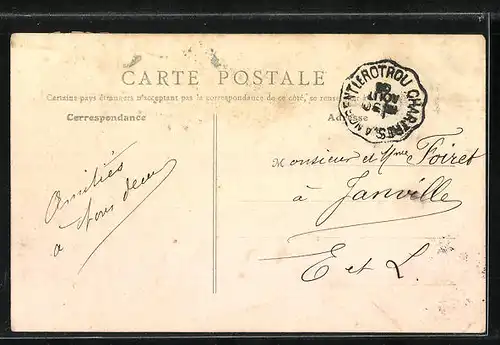 CARTE POSTALE
Certains pays étrangers n'acceptant pas la correspondance de ce côté, se
Correspondance
Adresse
CHARTRES
AOUT
Monsieur et Mme Foiret
à Janville
E et L.
Amitiés
à tous deux